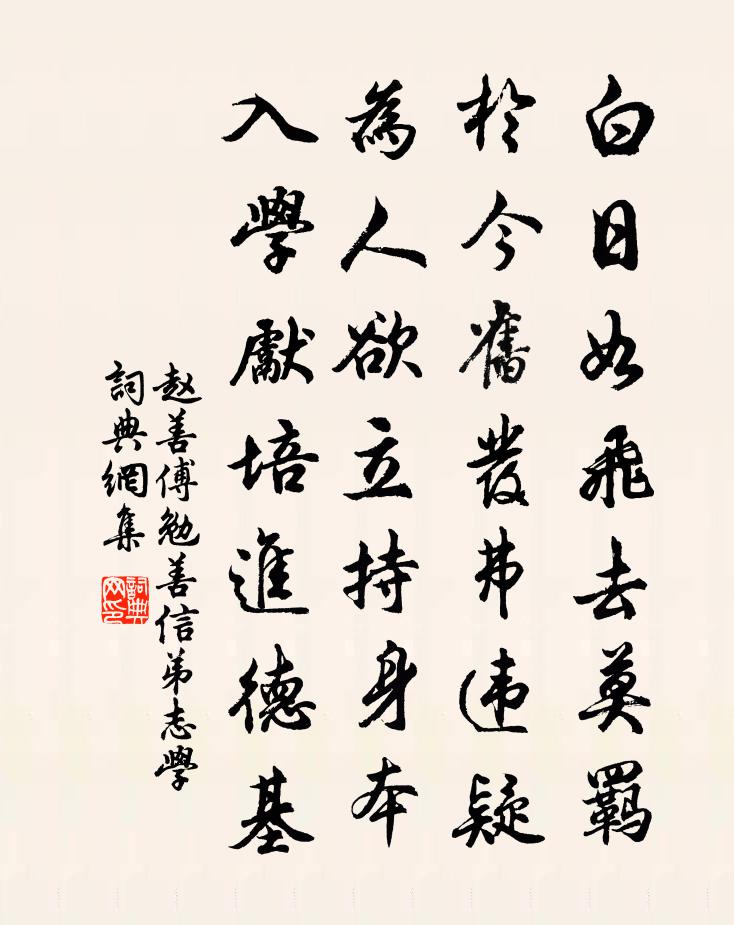 白日如飛去莫羈
於今奮發弗違疑
為人欲立持身本
入學獻培進德基
赵善傅勉善信弟志學
詞典網集
詞典
网印